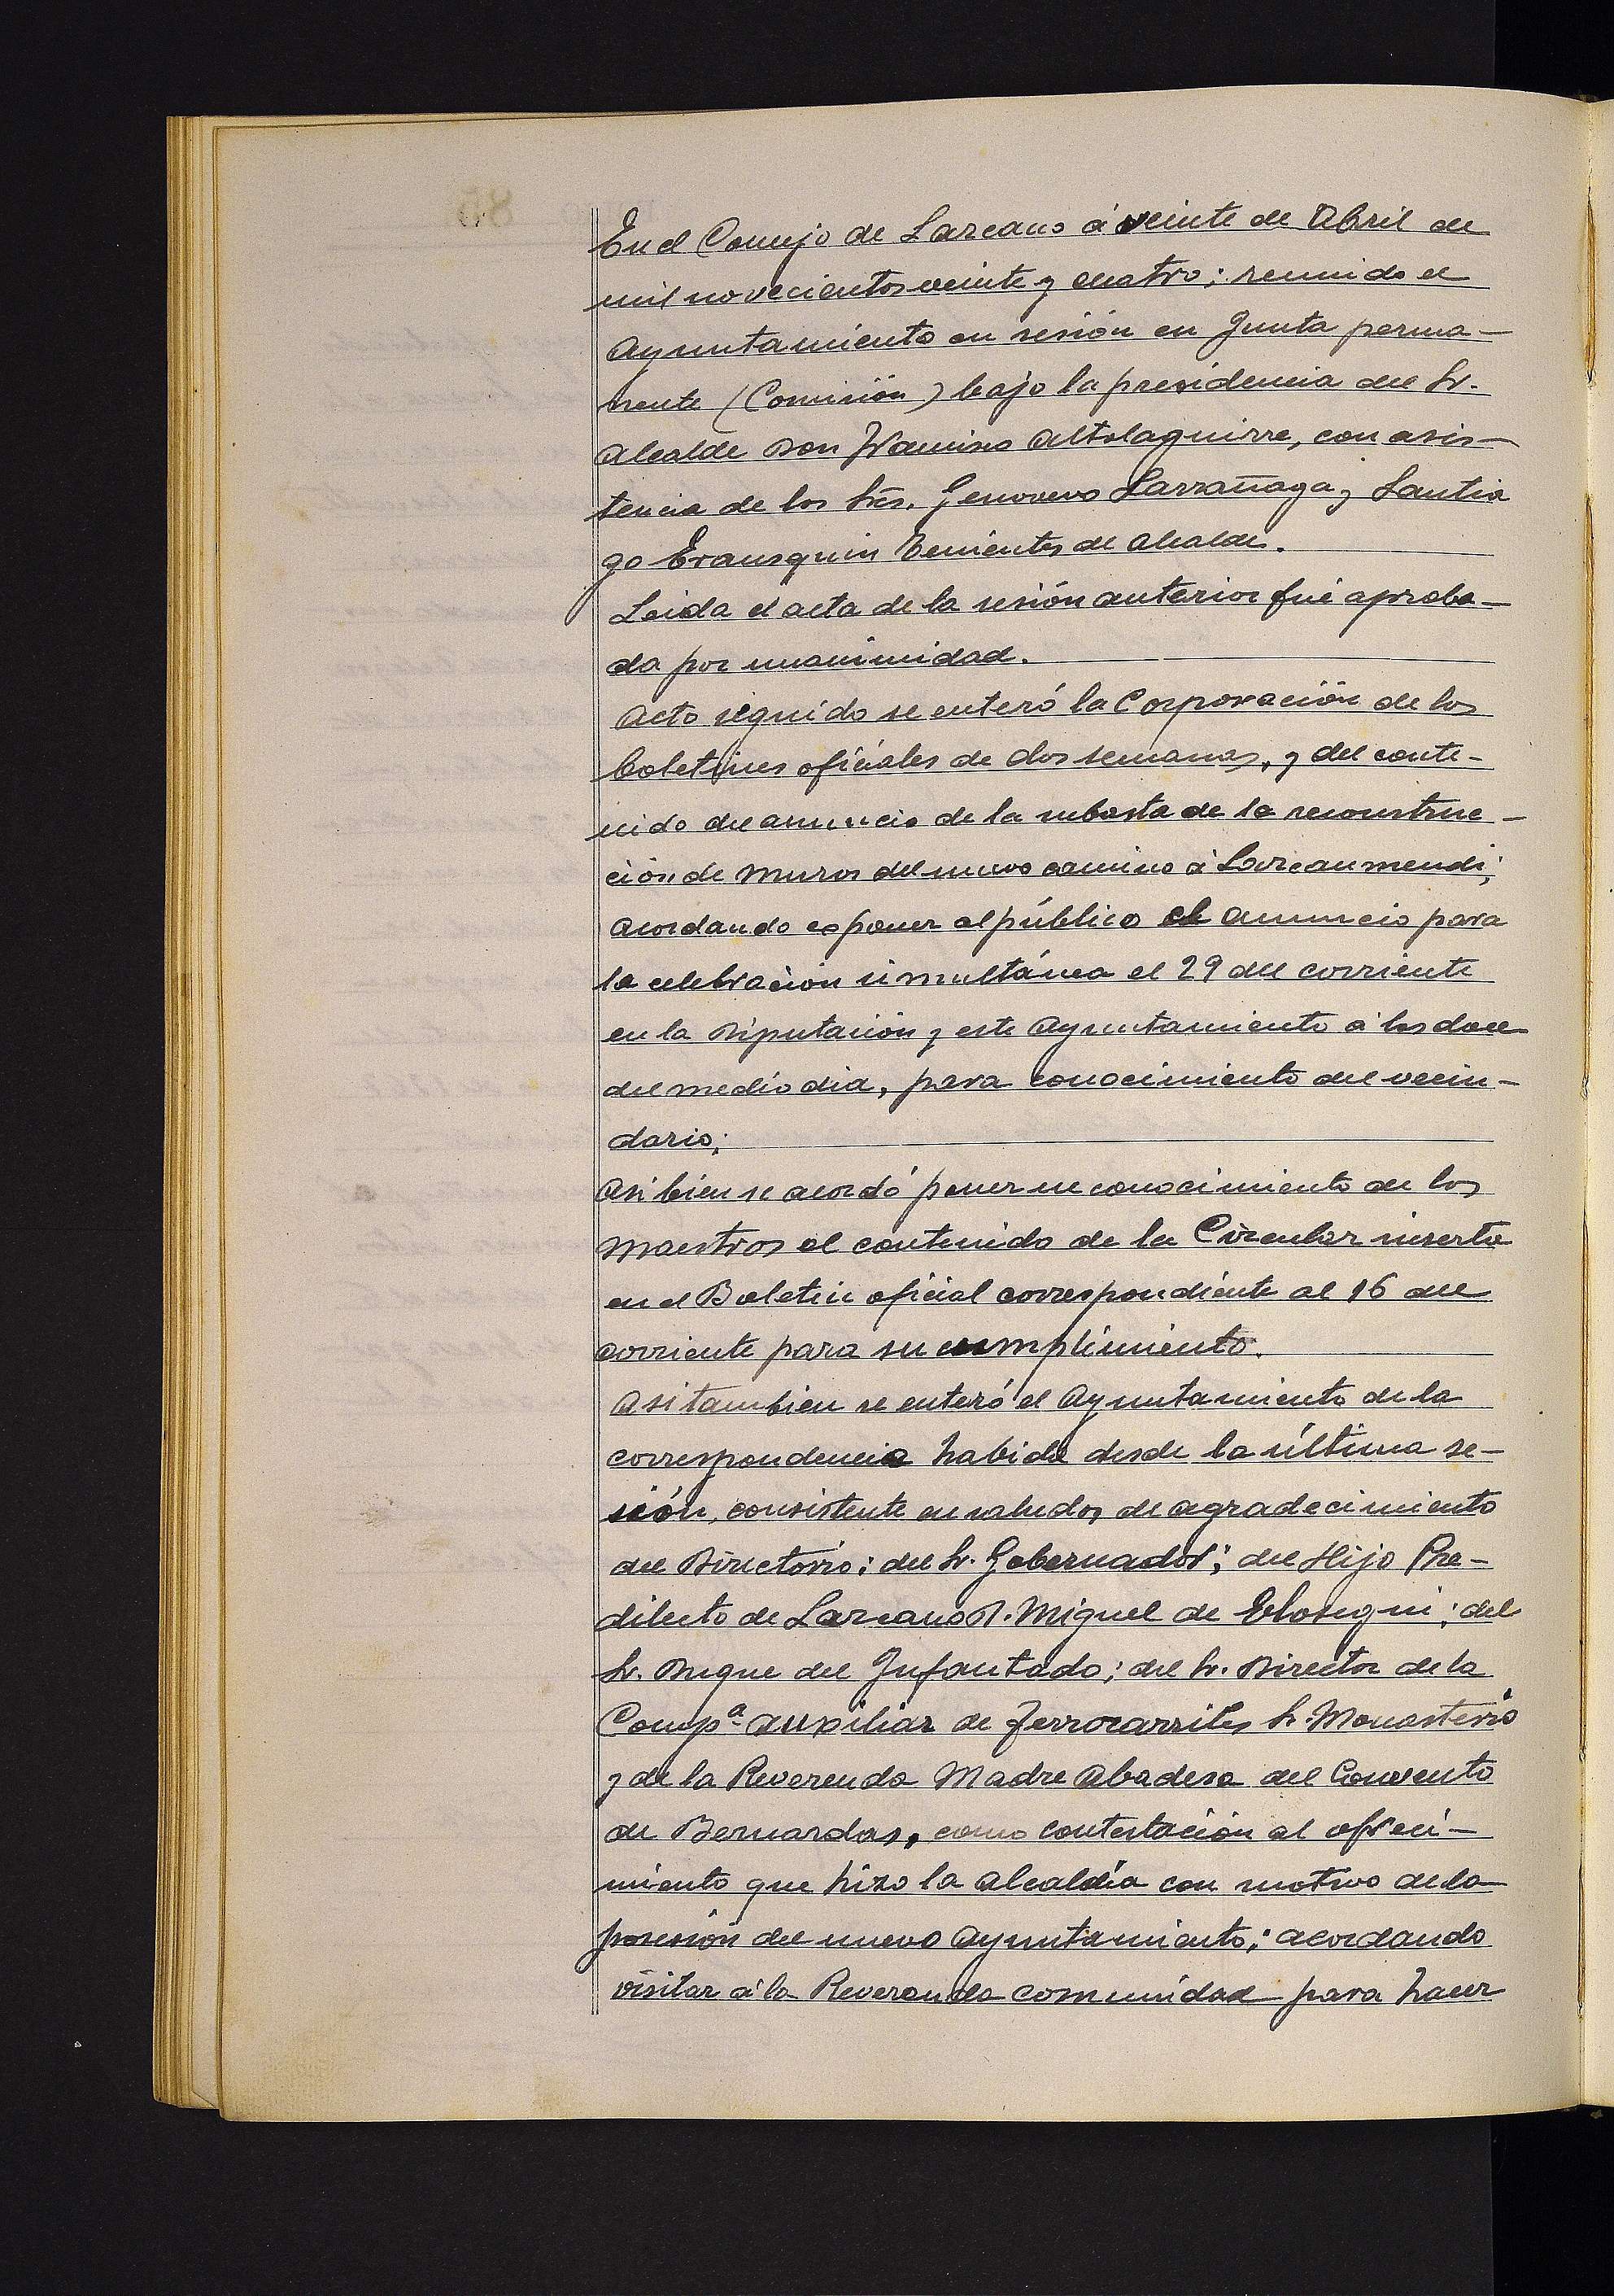 En el Consejo de Lazcano á veinte de Abril de
mil novecientos veinte y cuatro; reunido el
Ayuntamiento en sesión en Junta perma-
nente (Comisión) bajo la presidencia del Sr.
Alcalde Don Francisco Altolaguirre, con asis-
tencia de los Sres. Genovevo Larrañaga y Santia
go Erausquin Tenientes de Alcalde.
Leida el acta de la sesión anterior fué aproba-
da por unanimidad.
Acto seguido se enteró la Corporación de los
boletines oficiales de dos semanas, y del conte-
nido del anuncio de la subasta de la reconstruc-
ción de muros del nuevo camino á Lazcaumendi;
acordando exponer al público el anuncio para
la celebración simultánea el 29 del corriente
en la Diputación y este Ayuntamiento á las doce
del medio dia, para conocimiento del vecin-
dario;
Asi bien se acordó poner en conocimiento de los
Maestros el contenido de la Circular inserta
en el Boletin oficial correspondiente al 16 del
corriente para su cumplimiento.
Asi tambien se enteró el Ayuntamiento de la
correspondencia habida desde la última se-
sión, consistente en saludos de agradecimiento
del Directorio; del Sr. Gobernador; del Hijo Pre-
dilecto de Lazcano D. Miguel de Elosegui; del
Sr. Duque del Infantado; del Sr. Director de la
Compª. auxiliar de ferrocarriles Sr. Monasterio
y de la Reverenda Madre Abadesa del Convento
de Bernardas, como contestación al ofreci-
miento que hizo la Alcaldía con motivo de la
posesión del nuevo Ayuntamiento; acordando
visitar á la Reverenda comunidad para hacer